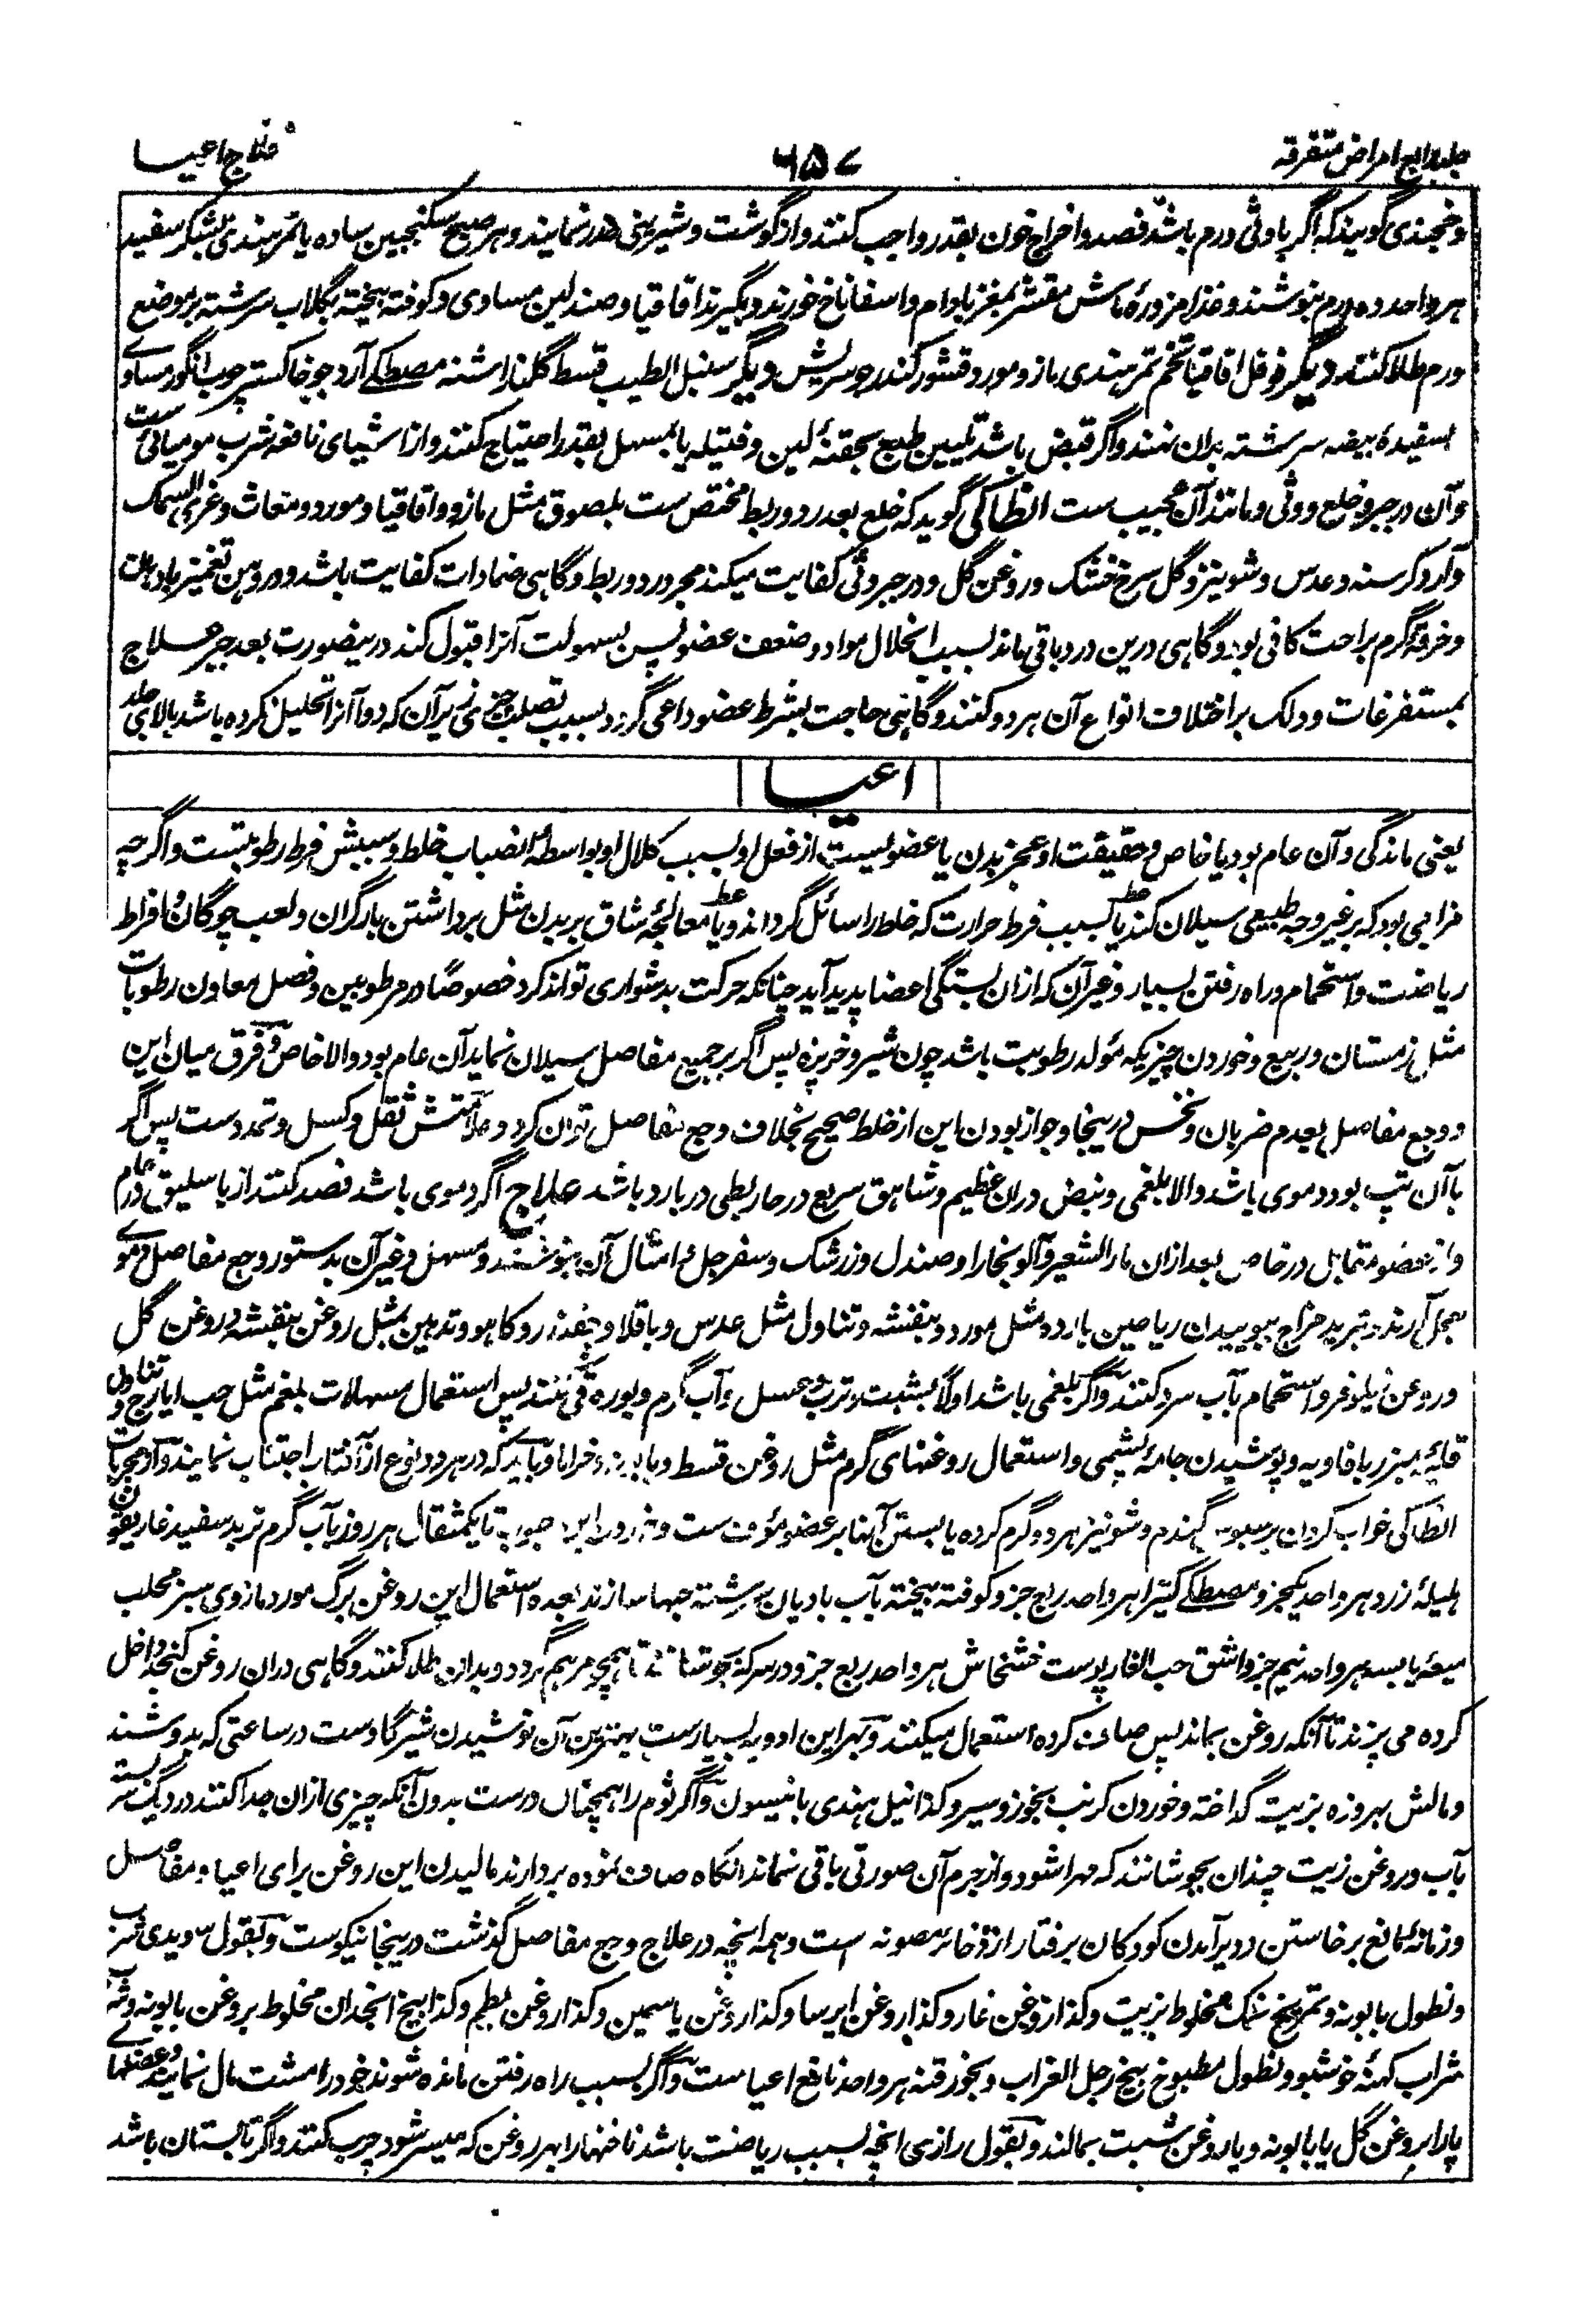 جلد رابع امراض متفرقه
۶۵۷
علاج اعیا
و خجندی گوید که اگر با وثی ورم باشد فصد و اخراج خون بقدر واجب کنند و از گوشت و شیرینی حذر نمایند و هر صبح سکنجبین ساده یا تمر هندی بشکر سفید
هر واحد ده درم بنوشند و غذا مزوره ماش مقشر بمغز بادام و اسفاناخ خورند و بگیرند اقاقیا و صندلین مساوی و کوفته بیخته بگلاب سرشته بر موضع
ورم طلا کنند دیگر فوفل اقاقیا تخم تمر هندی مازو مورد قشور کندر سریش دیگر سنبل الطیب قسط گلنار اشنه مصطکی آرد جو خاکستر چوب انگور مساوے
اسفیده بیضه سرشته بدان نهند و اگر قبض باشد تلیین طبع بحقنهٔ لین و فتیله یا بمسهل بقدر احتیاج کنند و از اشیای نافعه شرب مومیائی ست
و آن در جبر و خلع و وثی و مانند آن عجیب ست انطاکی گوید که خلع بعد رد و ربط مختص ست بلصوق مثل مازو و اقاقیا و مورد و مغاث و غری السمک
و آرد کرسنه و عدس و شونیز و گل سرخ خشک و روغن گل و در جبر وثی کفایت میکند مجرد رد و ربط و گاهی ضمادات کفایت باشد و در وهن تغمیز بادهان
و خرقهٔ گرم براحت کافی بود و گاهی درین درد باقی ماند بسبب انحلال مواد و ضعف عضو پس بسهولت آنرا قبول کند درینصورت بعد جبر علاج
بمستفرغات و دلک بر اختلاف انواع آن هر دو کنند و گاهی حاجت بشرط عضو داعی گردد بسبب تصلب چیزی زیر آن که دوا آنرا تحلیل نکرده باشد بالای جلد
اعیا
یعنی ماندگی و آن عام بود یا خاص و حقیقت او عجز بدن یا عضویست از فعل او بسبب کلال او بواسطهٔ انصباب خلط و سببش فرط رطوبتست و اگرچه
مزاجی بود که بر غیر وجه طبیعی سیلان کند یا بسبب فرط حرارت که خلط را سائل گرداند و یا معالجهٔ شاق بر بدن مثل برداشتن بار گران و لعب چوگان و افراط
ریاضت و استحمام و راه رفتن بسیار و غیر آن که ازان بستگی اعضا پدید آید چنانکه حرکت بدشواری تواند کرد خصوصًا در مرطوبین و فصل معاون رطوبات
مثل زمستان و ربیع و خوردن چیزیکه مولد رطوبت باشد چون شیر و خربزه پس اگر بر جمیع مفاصل سیلان نماید آن عام بود والا خاص و فرق میان این
و وجع مفاصل بعدم ضربان و نخس درینجا و جواز بودن این از خلط صحیح بخلاف وجع مفاصل توان کرد و علامتش ثقل و کسل و تمدد ست پس اگر
با آن تپ بود دموی باشد والا بلغمی و نبض دران عظیم و شاهق سریع در حار بطی در بارد باشد علاج اگر دموی باشد فصد کنند از باسلیق در عام
و از عضو متقابل در خاص بعد ازان ماء الشعیر و آلو بخارا و صندل و زرشک و سفرجل و امثال آن بنوشند و مسهل و غیر آن بدستور وجع مفاصل دموے
بعمل آرند و تبرید مزاج ببوییدن ریاحین بارد و مثل مورد و بنفشه و تناول مثل عدس و باقلا و چقندر و کاهو و تدهین بمثل روغن بنفشه و روغن گل
و روغن نیلوفر و استحمام بآب سرد کنند و اگر بلغمی باشد اولًا بشبت و ترب و عسل و آب گرم و بوره قی کنند پس استعمال مسهلات بلغم مثل حب ایارج و تناول
قلیهٔ مبزر بافاویه و پوشیدن جامهٔ پشمی و استعمال روغنهای گرم مثل روغن قسط و بابونه و خزاما و باید که در هر دو نوع از آفتاب اجتناب نمایند و از مجربات
انطاکی خواب کردن بر سبوس گندم و شونیز هر دو گرم کرده یا بستن آنها بر عضو مؤف ست و خوردن این حبوب تا یکمثقال هر روز بآب گرم تربد سفید غاریقون
هلیلهٔ زرد هر واحد یکجزو مصطکی کتیرا هر واحد ربع جزو کوفته بیخته بآب بادیان سرشته حبها سازند بعده استعمال این روغن برگ مورد مازوی سبز محلب
میعهٔ یابسه هر واحد نیم جزو اشق حب الغار پوست خشخاش هر واحد ربع جزو در سرکه بجوشانند تا همچو مرهم گردد و بدان طلا کنند و گاهی دران روغن کنجد داخل
کرده می پزند تا آنکه روغن بماند پس صاف کرده استعمال میکنند و بهر این ادویه بسیارست بهترین آن نوشیدن شیر گاوست در ساعتی که بدوشند
و مالش بهروزه بزیت گداخته و خوردن کرنب بجوز و سیر و کذا نیل هندی بانیسون و اگر ثوم را همچنان درست بدون آنکه چیزی ازان جدا کنند در دیگ سر بسته
بآب و روغن زیت چندان بجوشانند که مهرا شود و از جرم آن صورتی باقی نماند آنگاه صاف نموده بردارند مالیدن این روغن برای اعیا و مفاصل
و زمانهٔ مانع برخاستن و دیر آمدن کودکان برفتار از ذخائر مصونه است و همه آنچه در علاج وجع مفاصل گذشت درینجا نیکوست و بقول سویدی شرب
و نطول بابونه و تمریخ نمک مخلوط بزیت و کذا روغن غار و کذا روغن ایرسا و کذا روغن یاسمین و کذا روغن بطم و کذا بیخ انجدان مخلوط بروغن بابونه و شرب
شراب کهنهٔ خوشبو و نطول مطبوخ بیخ رجل الغراب و بخور قنه هر واحد نافع اعیاست و اگر بسبب راه رفتن مانده شوند خود را مشت مال نمایند و عضلهاے
پا را بروغن گل یا بابونه و یا روغن شبت بمالند و بقول رازی آنچه بسبب ریاضت باشد ناخنها را بهر روغن که میسر شود چرب کنند و اگر تابستان باشد